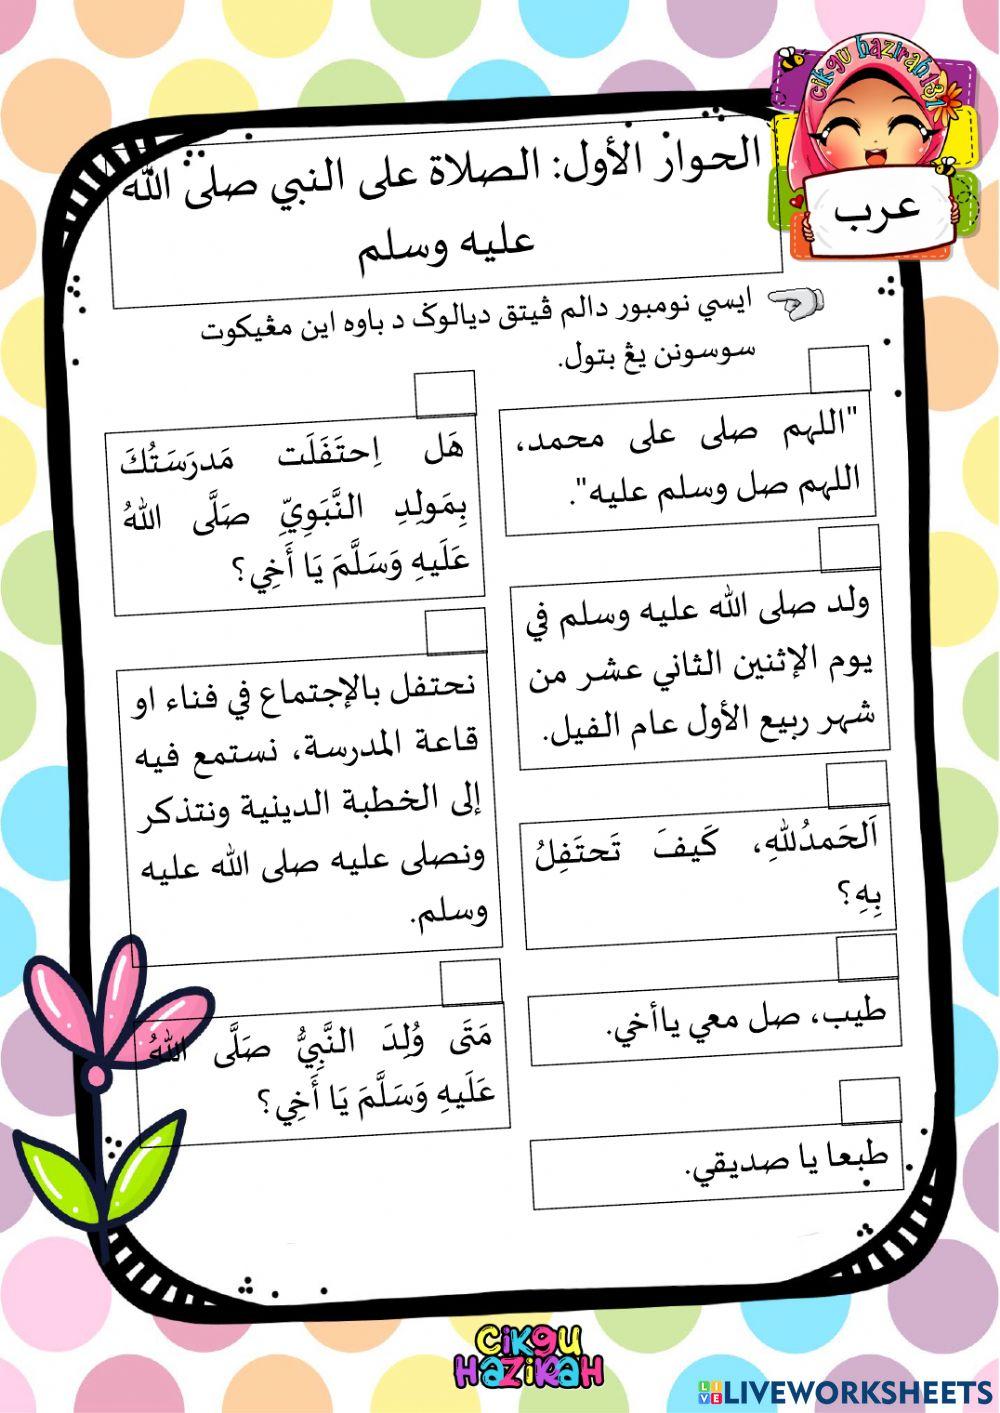 cikgu hazirah131
عرب
الحوار الأول: الصلاة على النبي صلى الله
عليه وسلم
ايسي نومبور دالم ڤيتق ديالوݢ د باوه اين مڠيكوت
سوسونن يڠ بتول.
"اللهم صلى على محمد،
اللهم صل وسلم عليه".
ولد صلى الله عليه وسلم في
يوم الإثنين الثاني عشر من
شهر ربيع الأول عام الفيل.
اَلحَمدُللهِ، كَيفَ تَحتَفِلُ
بِهِ؟
طيب، صل معي ياأخي.
طبعا يا صديقي.
هَل اِحتَفَلَت مَدرَسَتُكَ
بِمَولِدِ النَّبَوِيِّ صَلَّى اللهُ
عَلَيهِ وَسَلَّمَ يَا أَخِي؟
نحتفل بالإجتماع في فناء او
قاعة المدرسة، نستمع فيه
إلى الخطبة الدينية ونتذكر
ونصلى عليه صلى الله عليه
وسلم.
مَتَى وُلِدَ النَّبِيُّ صَلَّى اللهُ
عَلَيهِ وَسَلَّمَ يَا أَخِي؟
CIKGU
HAZIRAH
LIVE LIVEWORKSHEETS